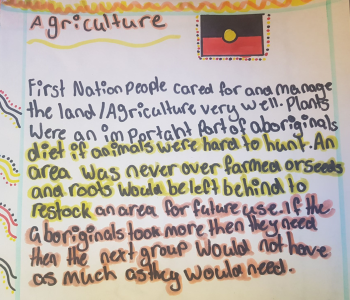 Agriculture
First Nation People cared for and manage
the land/Agriculture very well. Plants
Were an important Part of aboriginals
diet if animals were hard to hunt. An
area was never over farmed or seeds
and roots would be left behind to
restock an area for future use. If the
aboriginals took more then they need
then the next group would not have
as much as they would need.